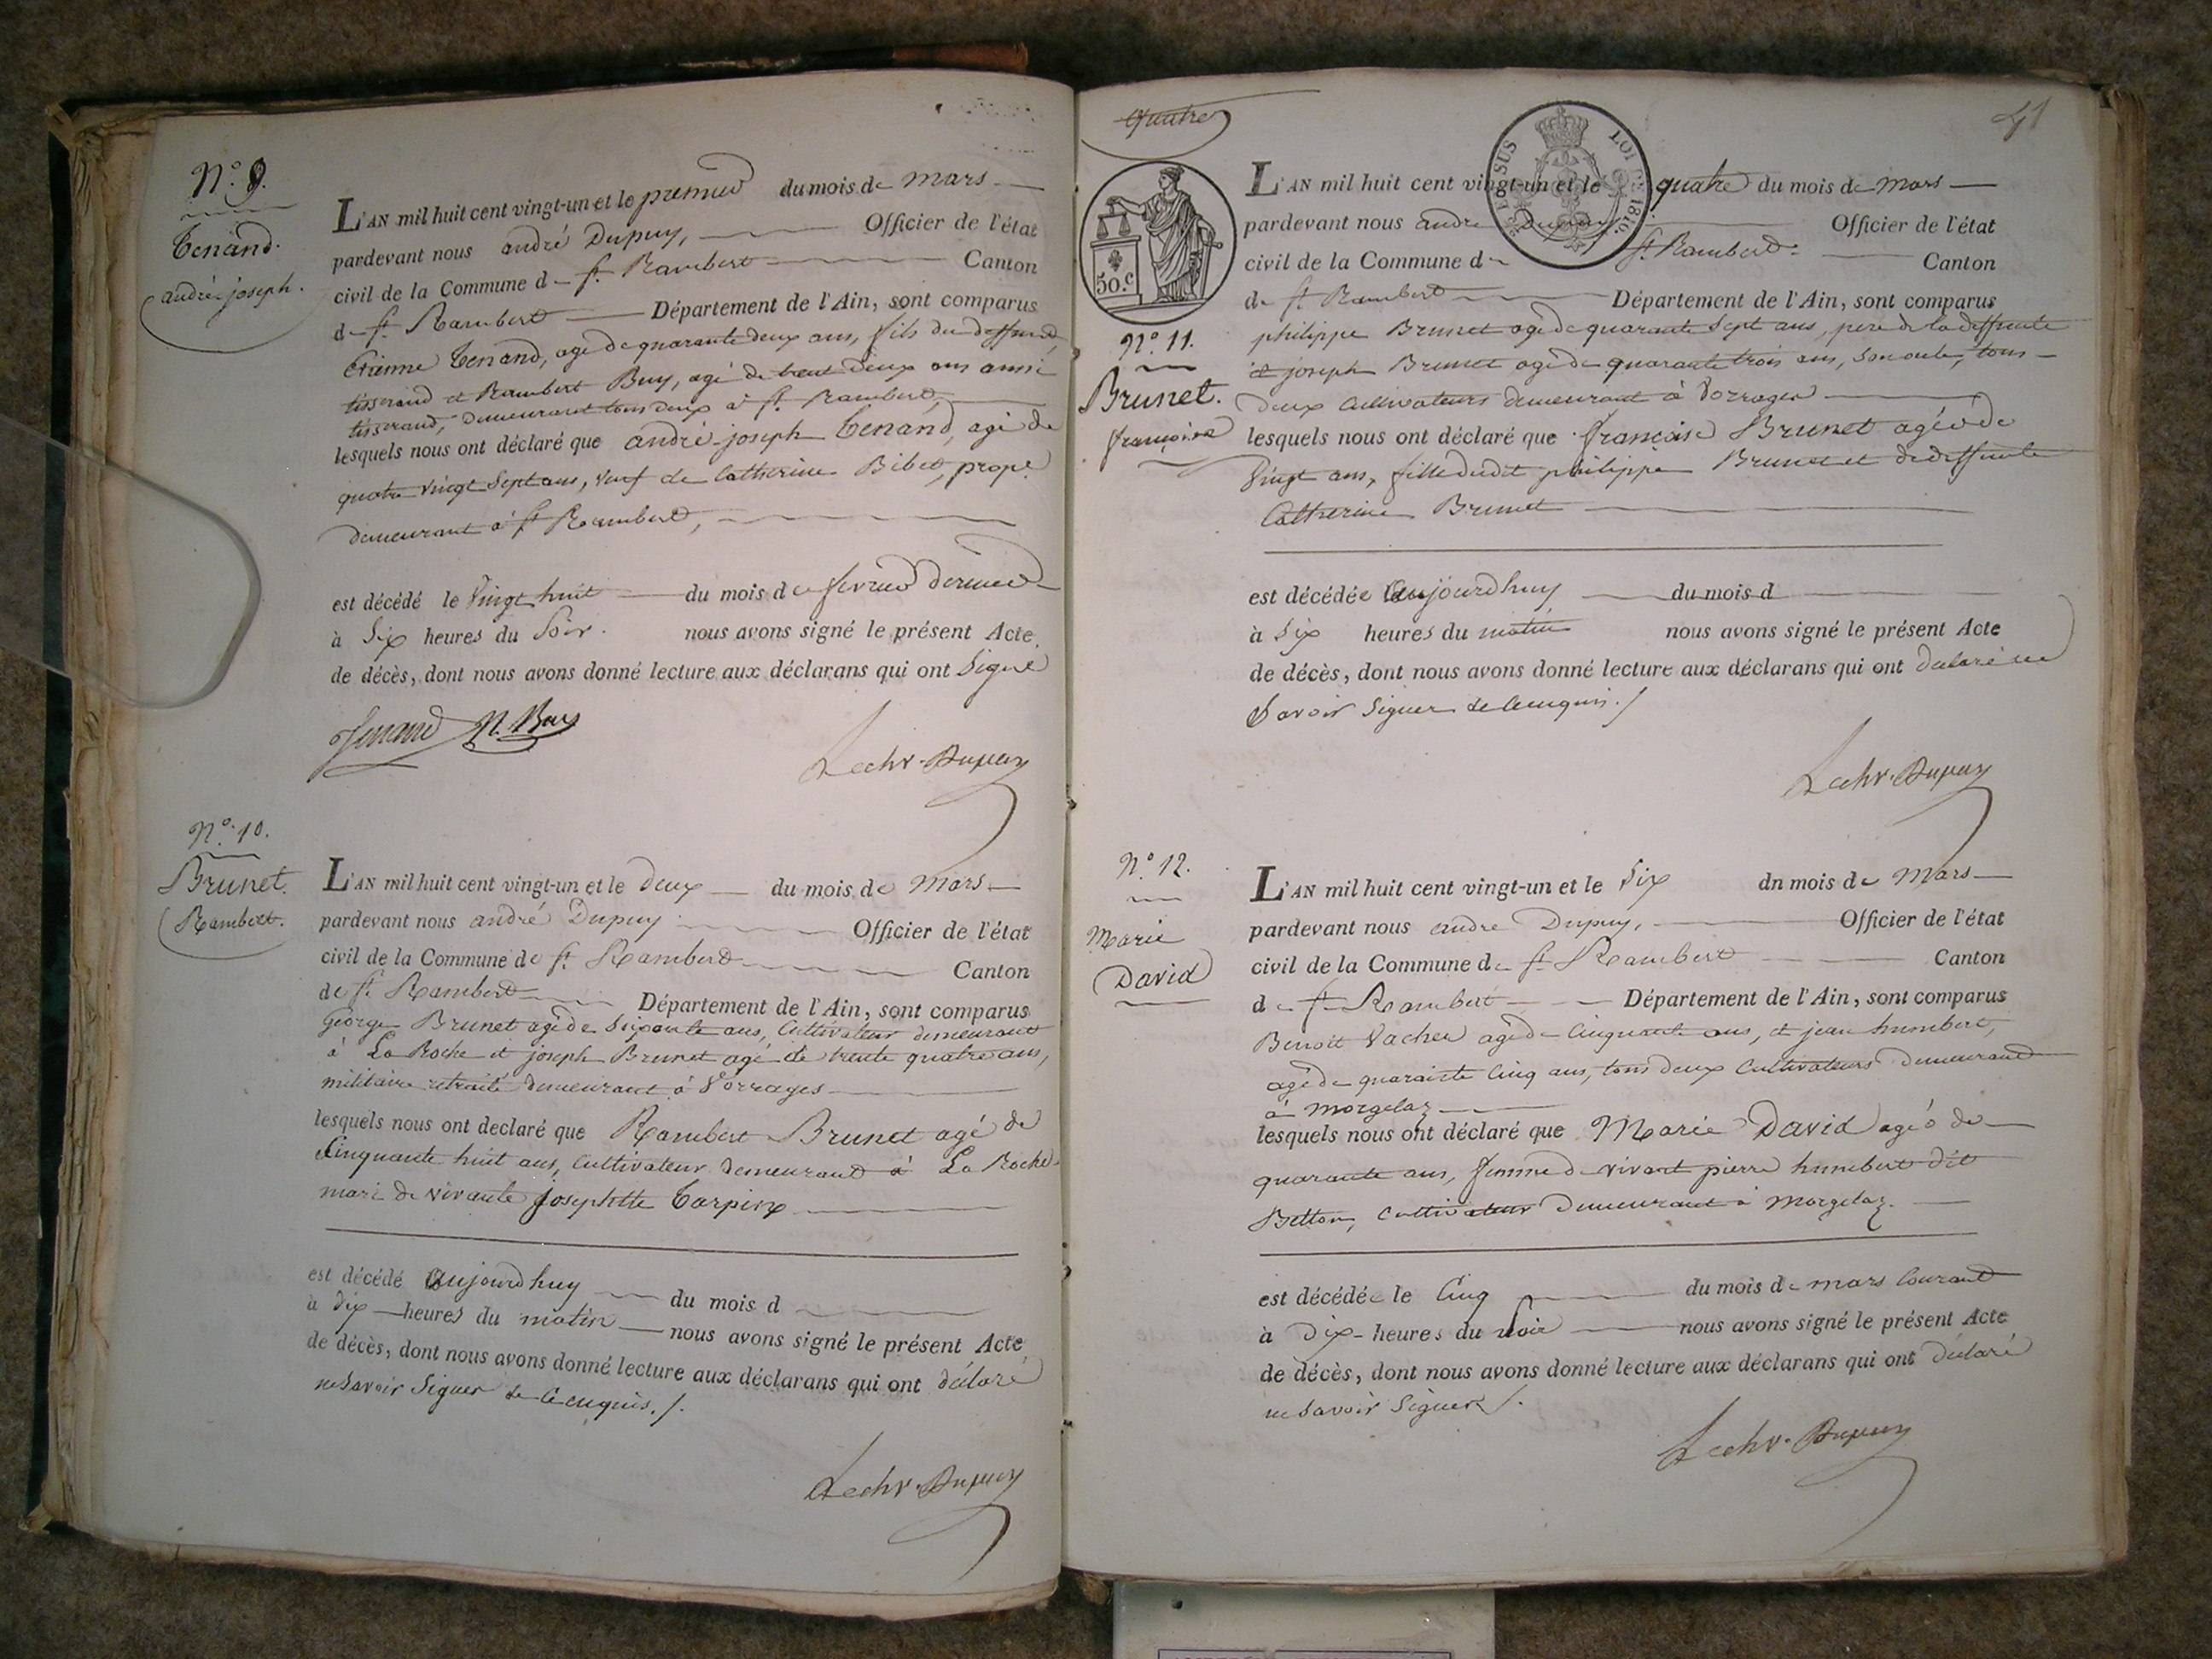 N.° 9.
Tenand.
andré-joseph.
L'AN mil huit cent vingt-un et le premier du mois de mars
pardevant nous andré Dupuy, Officier de l'état
civil de la Commune de St. Rambert Canton
de St. Rambert Département de l'Ain, sont comparus
Etienne Tenand, agé de quarante deux ans, fils du deffunt,
tisserand et Rambert Buy, agé de trent deux ans aussi
tisserand, demeurant tous deux à St. Rambert,
lesquels nous ont déclaré que andré-joseph Tenand, agé de
quatre vingt sept ans, veuf de Catherine Bibet, propre
demeurant à St Rambert,
est décédé le vingt huit du mois de fevrier dernier
à six heures du Soir. nous avons signé le présent Acte
de décès, dont nous avons donné lecture aux déclarans qui ont Signé
Tenand N. Buy
Lechv. Dupuy
N.° 10.
Brunet.
Rambert.
L'AN mil huit cent vingt-un et le deux du mois de Mars
pardevant nous andré Dupuy Officier de l'état
civil de la Commune de St. Rambert Canton
de St. Rambert Département de l'Ain, sont comparus
George Brunet agé de soixante ans, Cultivateur demeurant
à La Roche et joseph Brunet agé de trente quatre ans,
militaire retraité demeurant à Vorrages
lesquels nous ont declaré que Rambert Brunet agé de
Cinquante huit ans, Cultivateur demeurant à La Roche
mari de vivante Josephtte Tarpin
est décédé aujourdhuy du mois d
à dix heures du matin nous avons signé le présent Acte
de décès, dont nous avons donné lecture aux déclarans qui ont déclaré
ne Savoir Signer de ce enquis./.
Lechv. Dupuy
quatre
41
LOI DE 1816.
50.c
L'AN mil huit cent vingt-un et le quatre du mois de Mars
pardevant nous andré Dupuy Officier de l'état
civil de la Commune de St. Rambert Canton
de St. Rambert Département de l'Ain, sont comparus
N.° 11.
Brunet.
françoise
philippe Brunet agé de quarante Sept ans, pere de la deffunte
et joseph Brunet agé de quarante trois ans, son oncle, tous
deux Cultivateurs demeurant à Vorrages
lesquels nous ont déclaré que françoise Brunet agée de
Vingt ans, fille dudit philippe Brunet et de deffunte
Catherine Brunet
est décédée aujourdhuy du mois d
à Six heures du matin nous avons signé le présent Acte
de décès, dont nous avons donné lecture aux déclarans qui ont declaré ne
Savoir Signer de ce enquis./
Lechv. Dupuy
N.° 12.
Marie
David
L'AN mil huit cent vingt-un et le Six dn mois de Mars
pardevant nous andre Dupuy, Officier de l'état
civil de la Commune de St Rambert Canton
de St Rambert Département de l'Ain, sont comparus
Benoit Vacher agé de Cinquante ans, et jean humbert,
agé de quarante Cinq ans, tous deux Cultivateurs demeurant
à Morgelaz
lesquels nous ont déclaré que Marie David agée de
quarante ans, femme de vivant pierre humbert dit
Betton, Cultivateur demeurant à Morgelaz.
est décédée le Cinq du mois de mars Courant
à Dix heures du Soir nous avons signé le présent Acte
de décès, dont nous avons donné lecture aux déclarans qui ont déclaré
ne Savoir Signer/.
Lechv. Dupuy